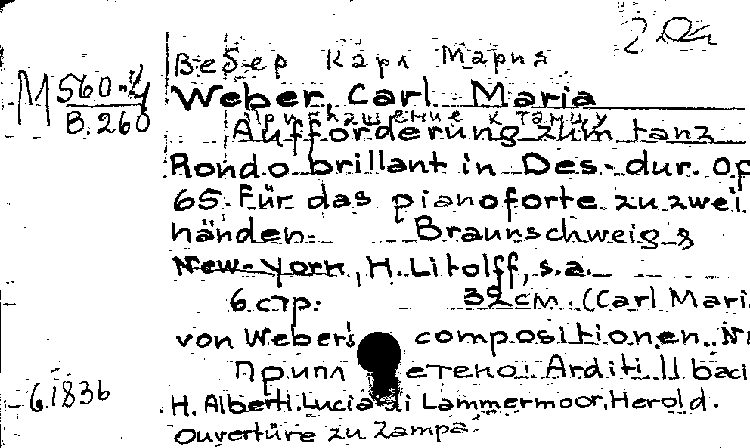 Вебер Карл Мария
М 560-4
В. 260
Weber, Carl Maria
Приглашение к танцу
Aufforderung zum tanz
Rondo brillant in Des-dur. Op
65. Für das pianoforte zu zwei
händen. Braunschweig &
New-York, H. Litolff, s.a.
6 стр. 32 см. (Carl Mari
von Weber's compositionen. N
Припл етено: Arditi. Il baci
61836
H. Alberti. Lucia di Lammermoor, Herold.
Ouvertüre zu Zampa.